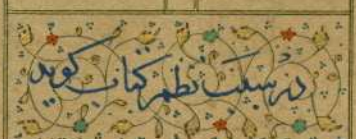 در سبب نظم کتاب گوید